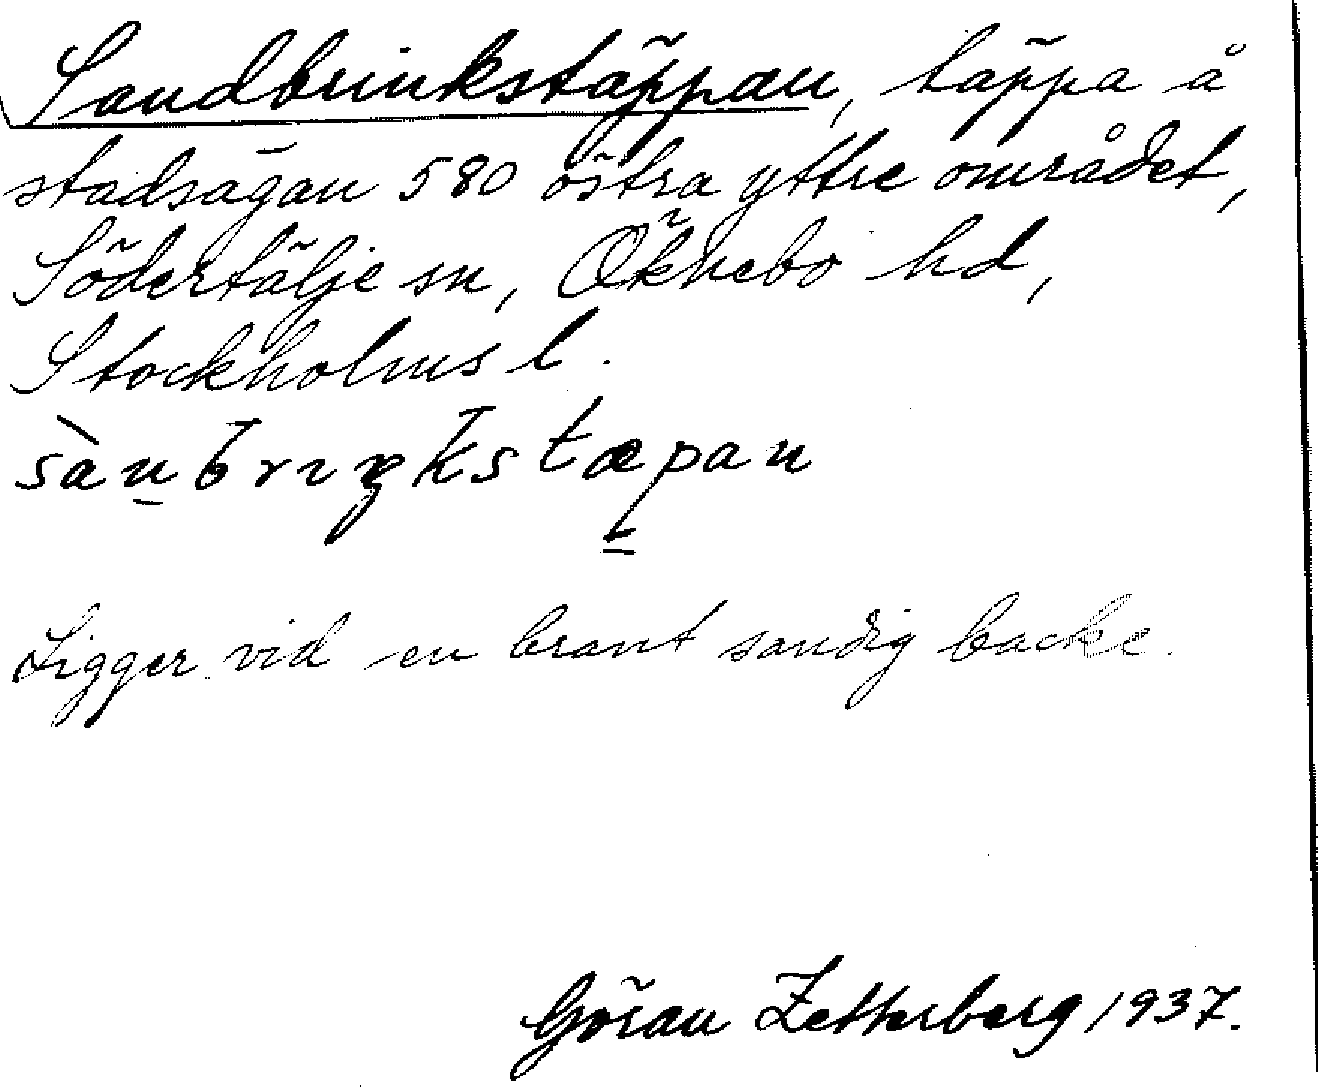 Sandbrinkstäppan, täppa å
stadsägan 580 östra yttre området,
Södertälje sn, Öknebo hd,
Stockholms l.
Ligger vid en brant sandig backe.
Göran Zetterberg 1937.